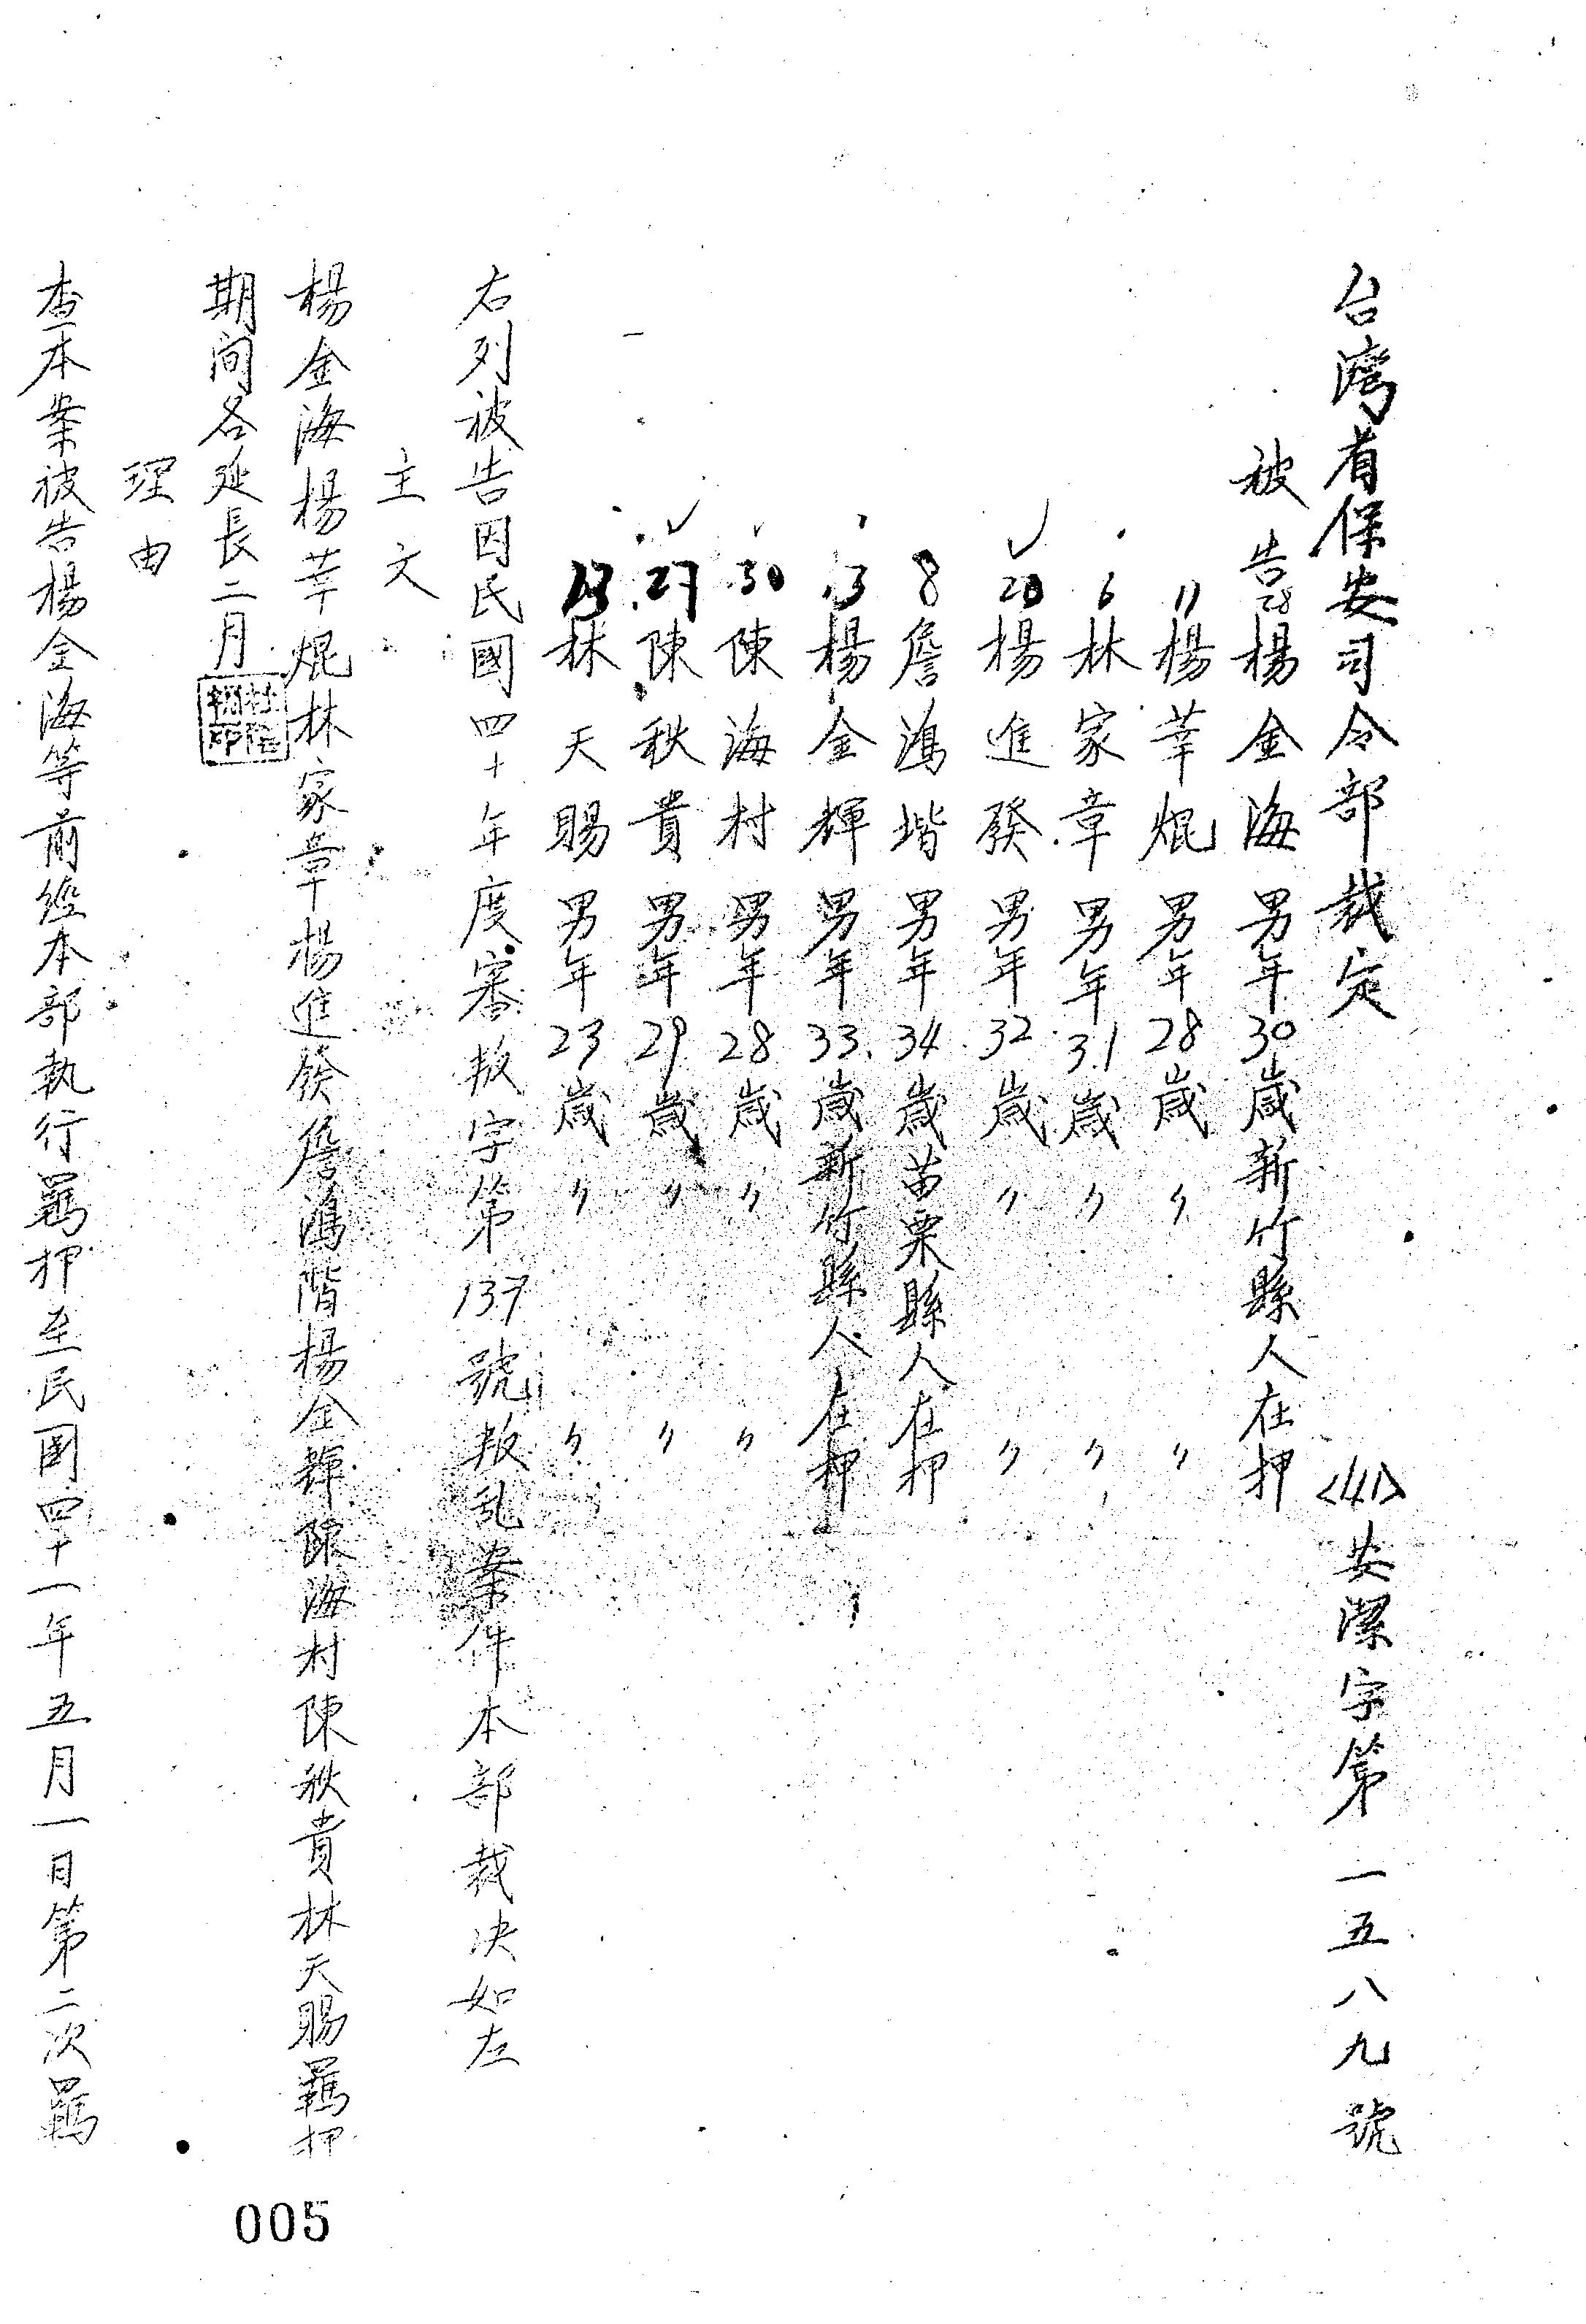 台灣省保安司令部裁定 <41>安潔字第一五八九號
被告 28 楊金海 男年30歲新竹縣人在押
11 楊莘焜 男年28歲 〃 〃
6 林家章 男年31歲 〃 〃
20 楊進發 男年32歲 〃 〃
8 詹鴻堦 男年34歲苗栗縣人在押
13 楊金輝 男年33歲新竹縣人在押
30 陳海村 男年28歲 〃 〃
27 陳秋貴 男年29歲 〃 〃
林天賜 男年23歲 〃 〃
右列被告因民國四十年度審叛字第137號叛乱案件本部裁决如左
主文
楊金海楊莘焜林家章楊進發詹鴻階楊金輝陳海村陳秋貴林天賜羈押
期间各延長二月
理由
查本案被告楊金海等前經本部執行羈押至民國四十一年五月一日第二次羈
005